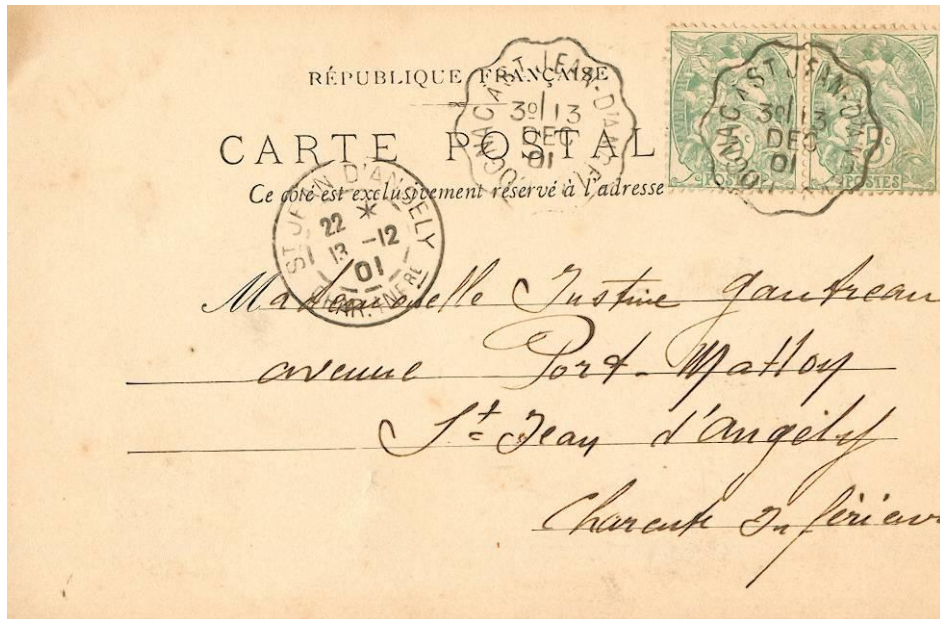 RÉPUBLIQUE FRANÇAISE
CARTE POSTALE
Ce côté est exclusivement réservé à l'adresse
COGNAC A ST JEAN-D'ANGELY
3º/13
DEC
01
COGNAC A ST JEAN-D'AN
3º/13
DEC
01
POSTES
ST JEAN D'ANGELY
22 *
13 -12
01
CHAR. INFRE
Mademoiselle Justine Gautreau
avenue Port-Mahon
St Jean d'Angély
Charente Inférieur